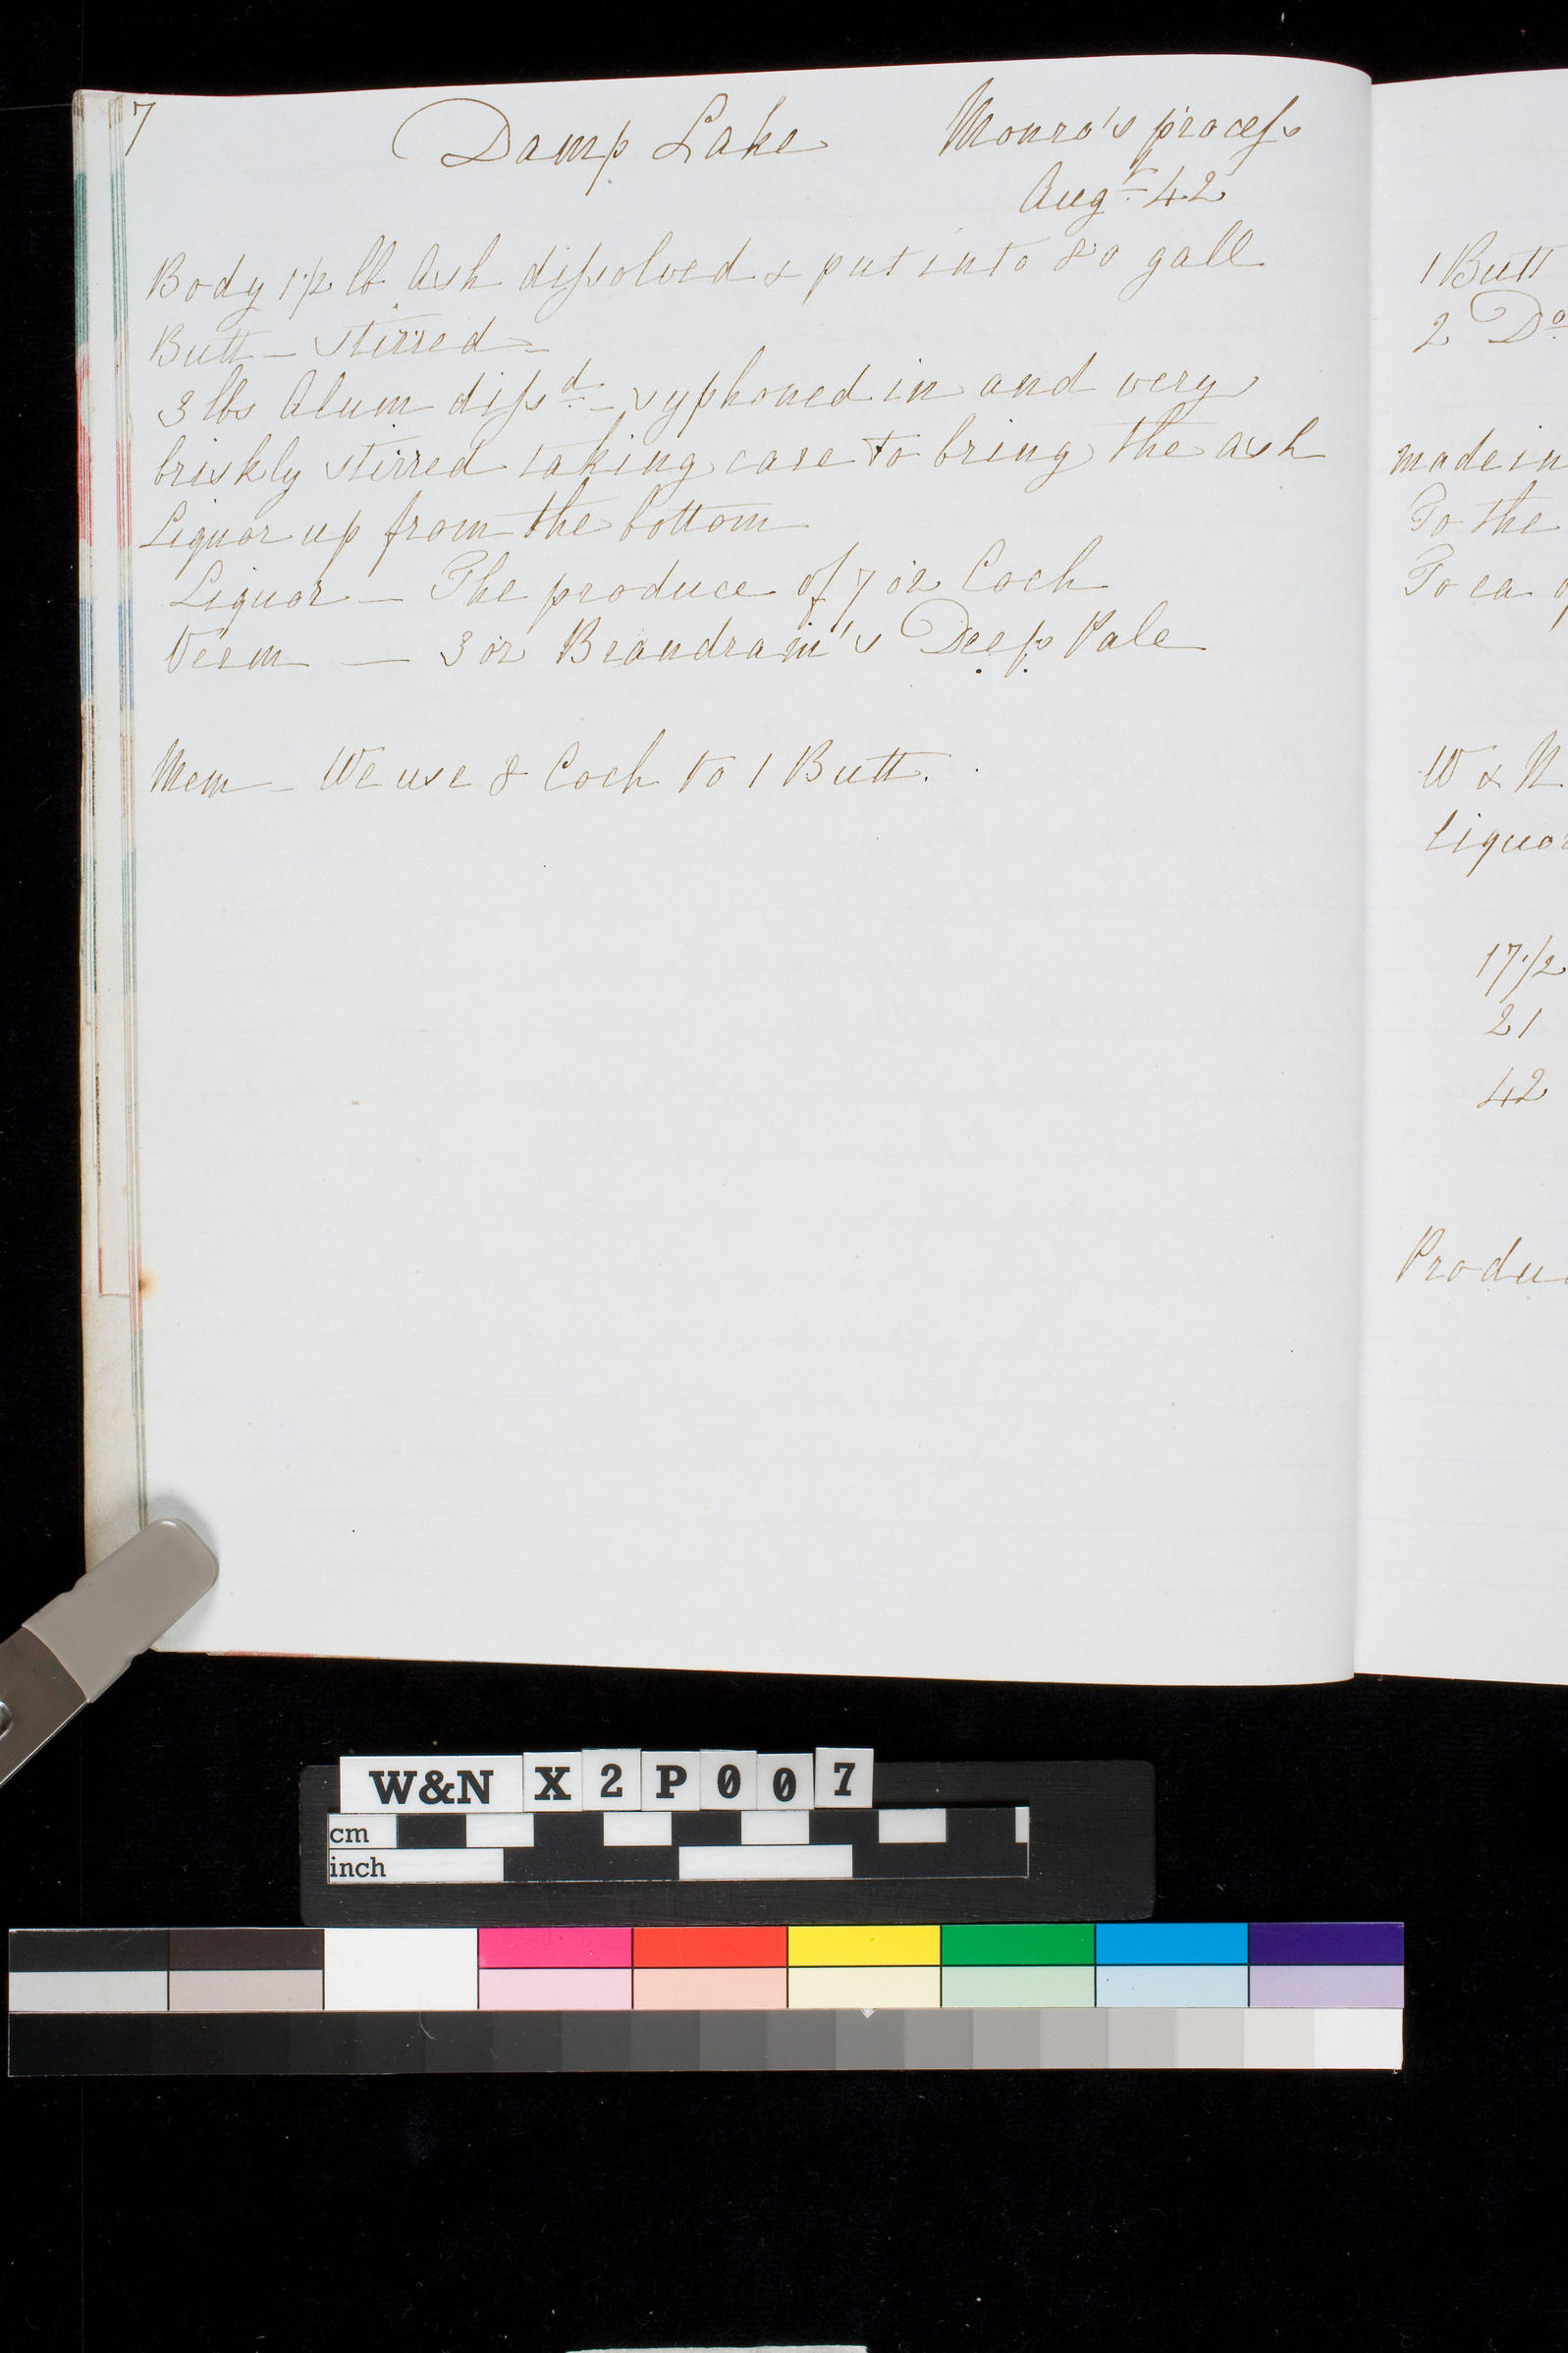 7
Damp Lake Monro's process
Augt 42
Body 1 1/2 lb Ash dissolved & put into 80 gall
Butt – stirred –
3 lbs Alum dissd – syphoned in and very
briskly stirred taking care to bring the ash
Liquor up from the bottom
Liquor – The produce of 7 oz Coch
Verm – 3 oz Brandram's Deep Pale
Mem – We use 8 Coch to 1 Butt.
1 Butt
2 Do
made in
To the
To ea
W & N
liquor
17 1/2
21
42
Produ
W&N X2P007
cm
inch